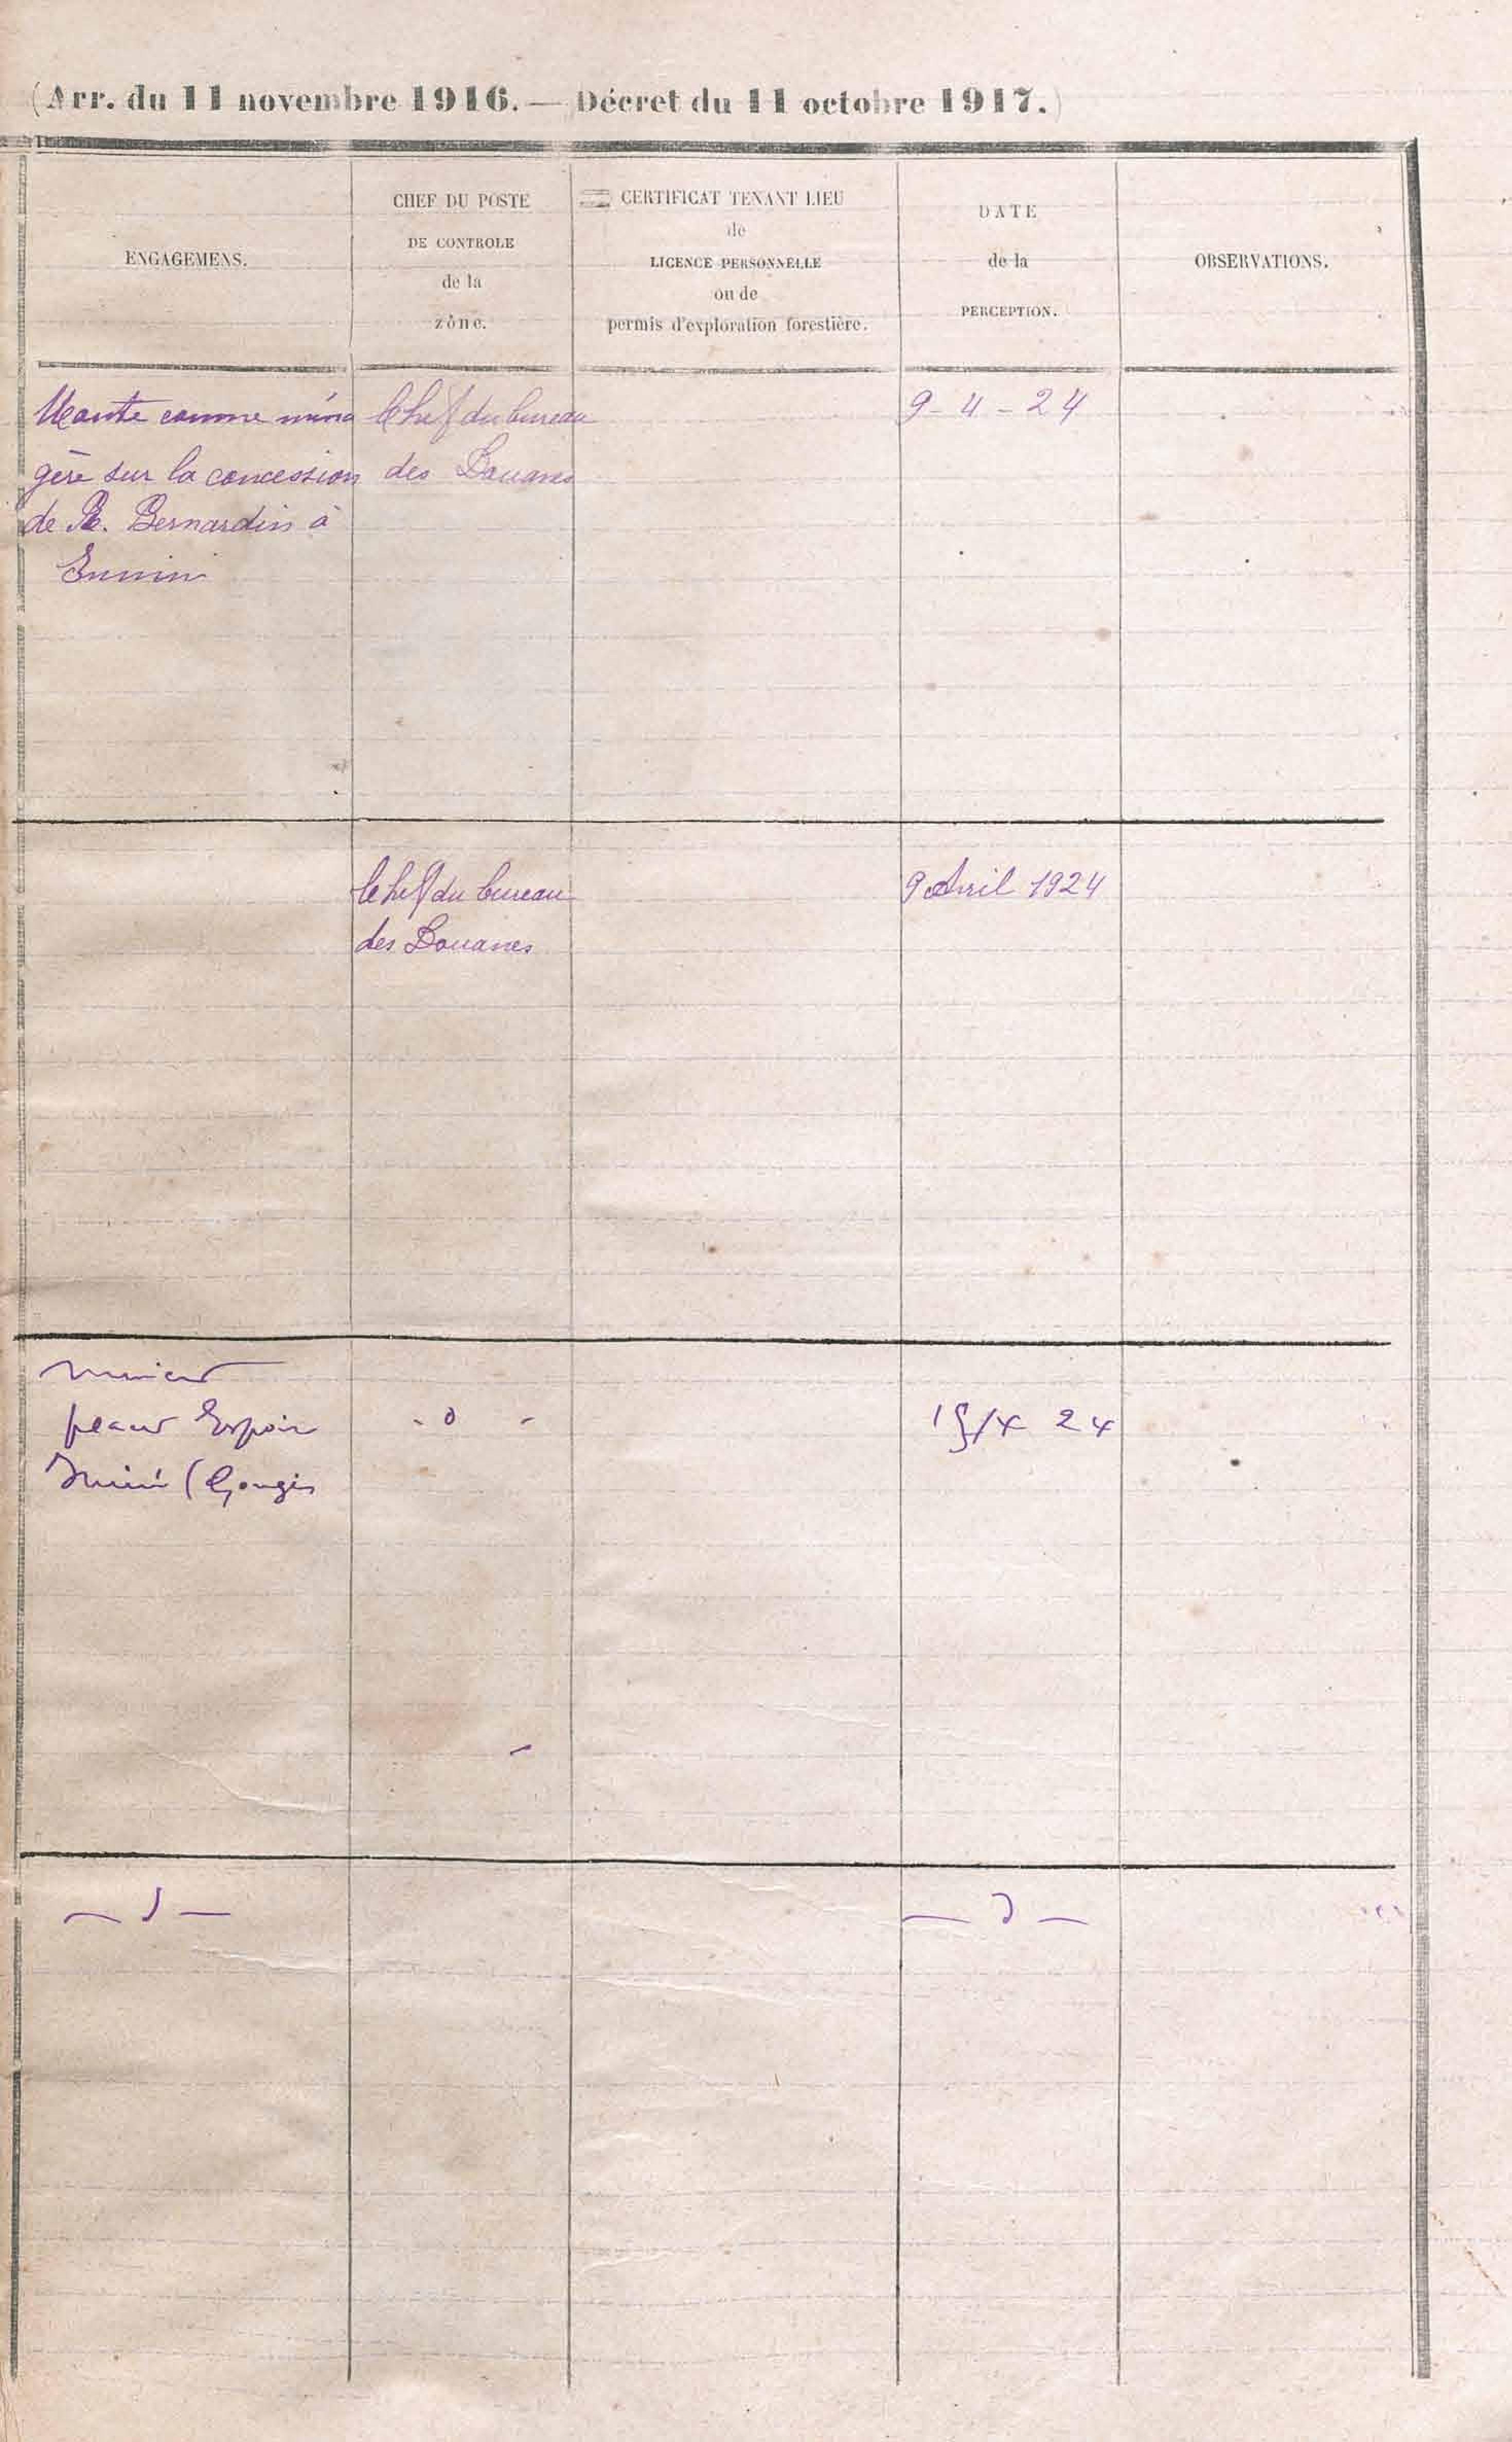 (Arr. du 11 novembre 1916. — Décret du 11 octobre 1917.)
ENGAGEMENS.
CHEF DU POSTE
DE CONTROLE
de la
zône.
CERTIFICAT TENANT LIEU
de
LICENCE PERSONNELLE
ou de
permis d'exploration forestière.
DATE
de la
PERCEPTION.
OBSERVATIONS.
Monte comme ména
gère sur la concession
de Bernardin à
Inini
Chef du bureau
des Douanes
9-4-24
Chef du bureau
des Douanes
9 Avril 1924
placer Espoir
Inini (Gougis
- d -
24
— d —
— d —